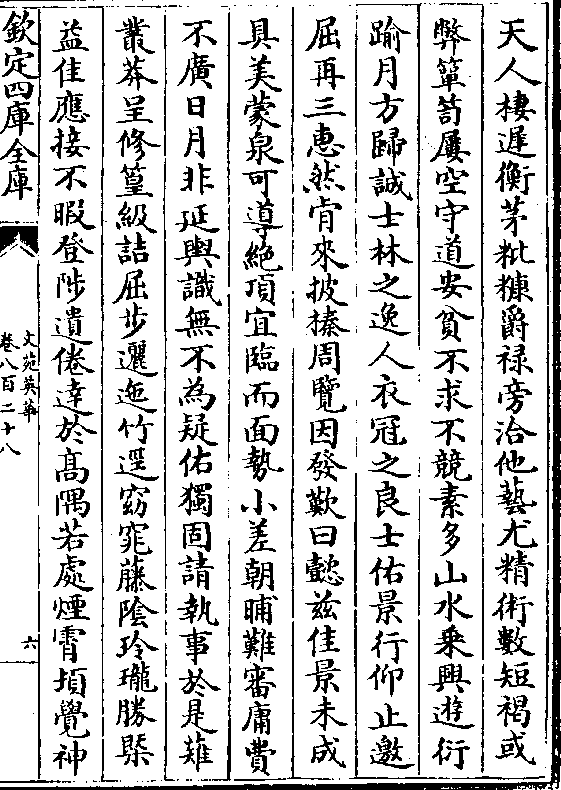 天人棲遲衡茅粃糠爵祿旁治他藝尤精術數短褐或
弊簞笥屢空守道安貧不求不競素多山水乗興遊衍
踰月方歸誠士林之逸人衣冠之良士佑景行仰止邀
屈再三惠然肯來披榛周覽因發歎曰懿茲佳景未成
具美蒙泉可導絶頂宜臨而面勢小差朝晡難審庸費
不廣日月非延輿識無不為疑佑獨固請執事於是薙
叢莽呈修篁級詰屈步邐迤竹逕窈窕藤陰玲瓏勝槩
益佳應接不暇登陟遺倦達於髙隅若處煙霄頃覺神
欽定四庫全庫
文苑英華
卷八百二十八
六